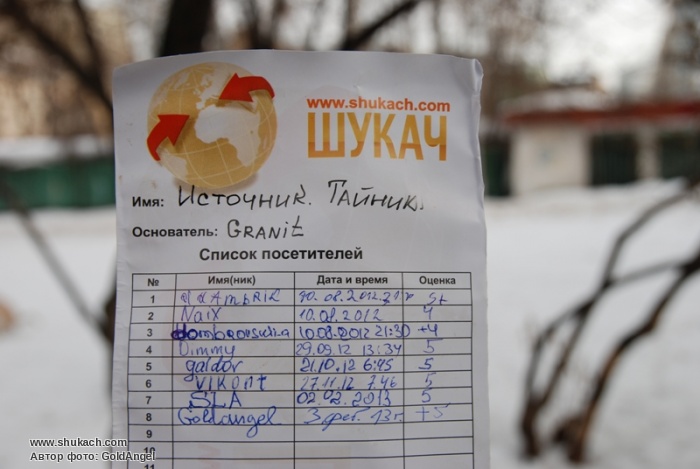 www.shukach.com
ШУКАЧ
Имя: Источник. Тайник.
Основатель: GRANIT
Список посетителей
№ Имя(ник) Дата и время Оценка
1 10.08.2012 5+
2 Naix 10.08.2012 4
3 10.08.2012 21:30 +4
4 Dimmy 29.09.12 13:34 5
5 galdor 21.10.12 6:45 5
6 VIKONt 27.11.12 7:46 5
7 SLA 02.02.2013 5
8 Goldangel 3 фев. 13г. +5
9
10
11
www.shukach.com
Автор фото: GoldAngel